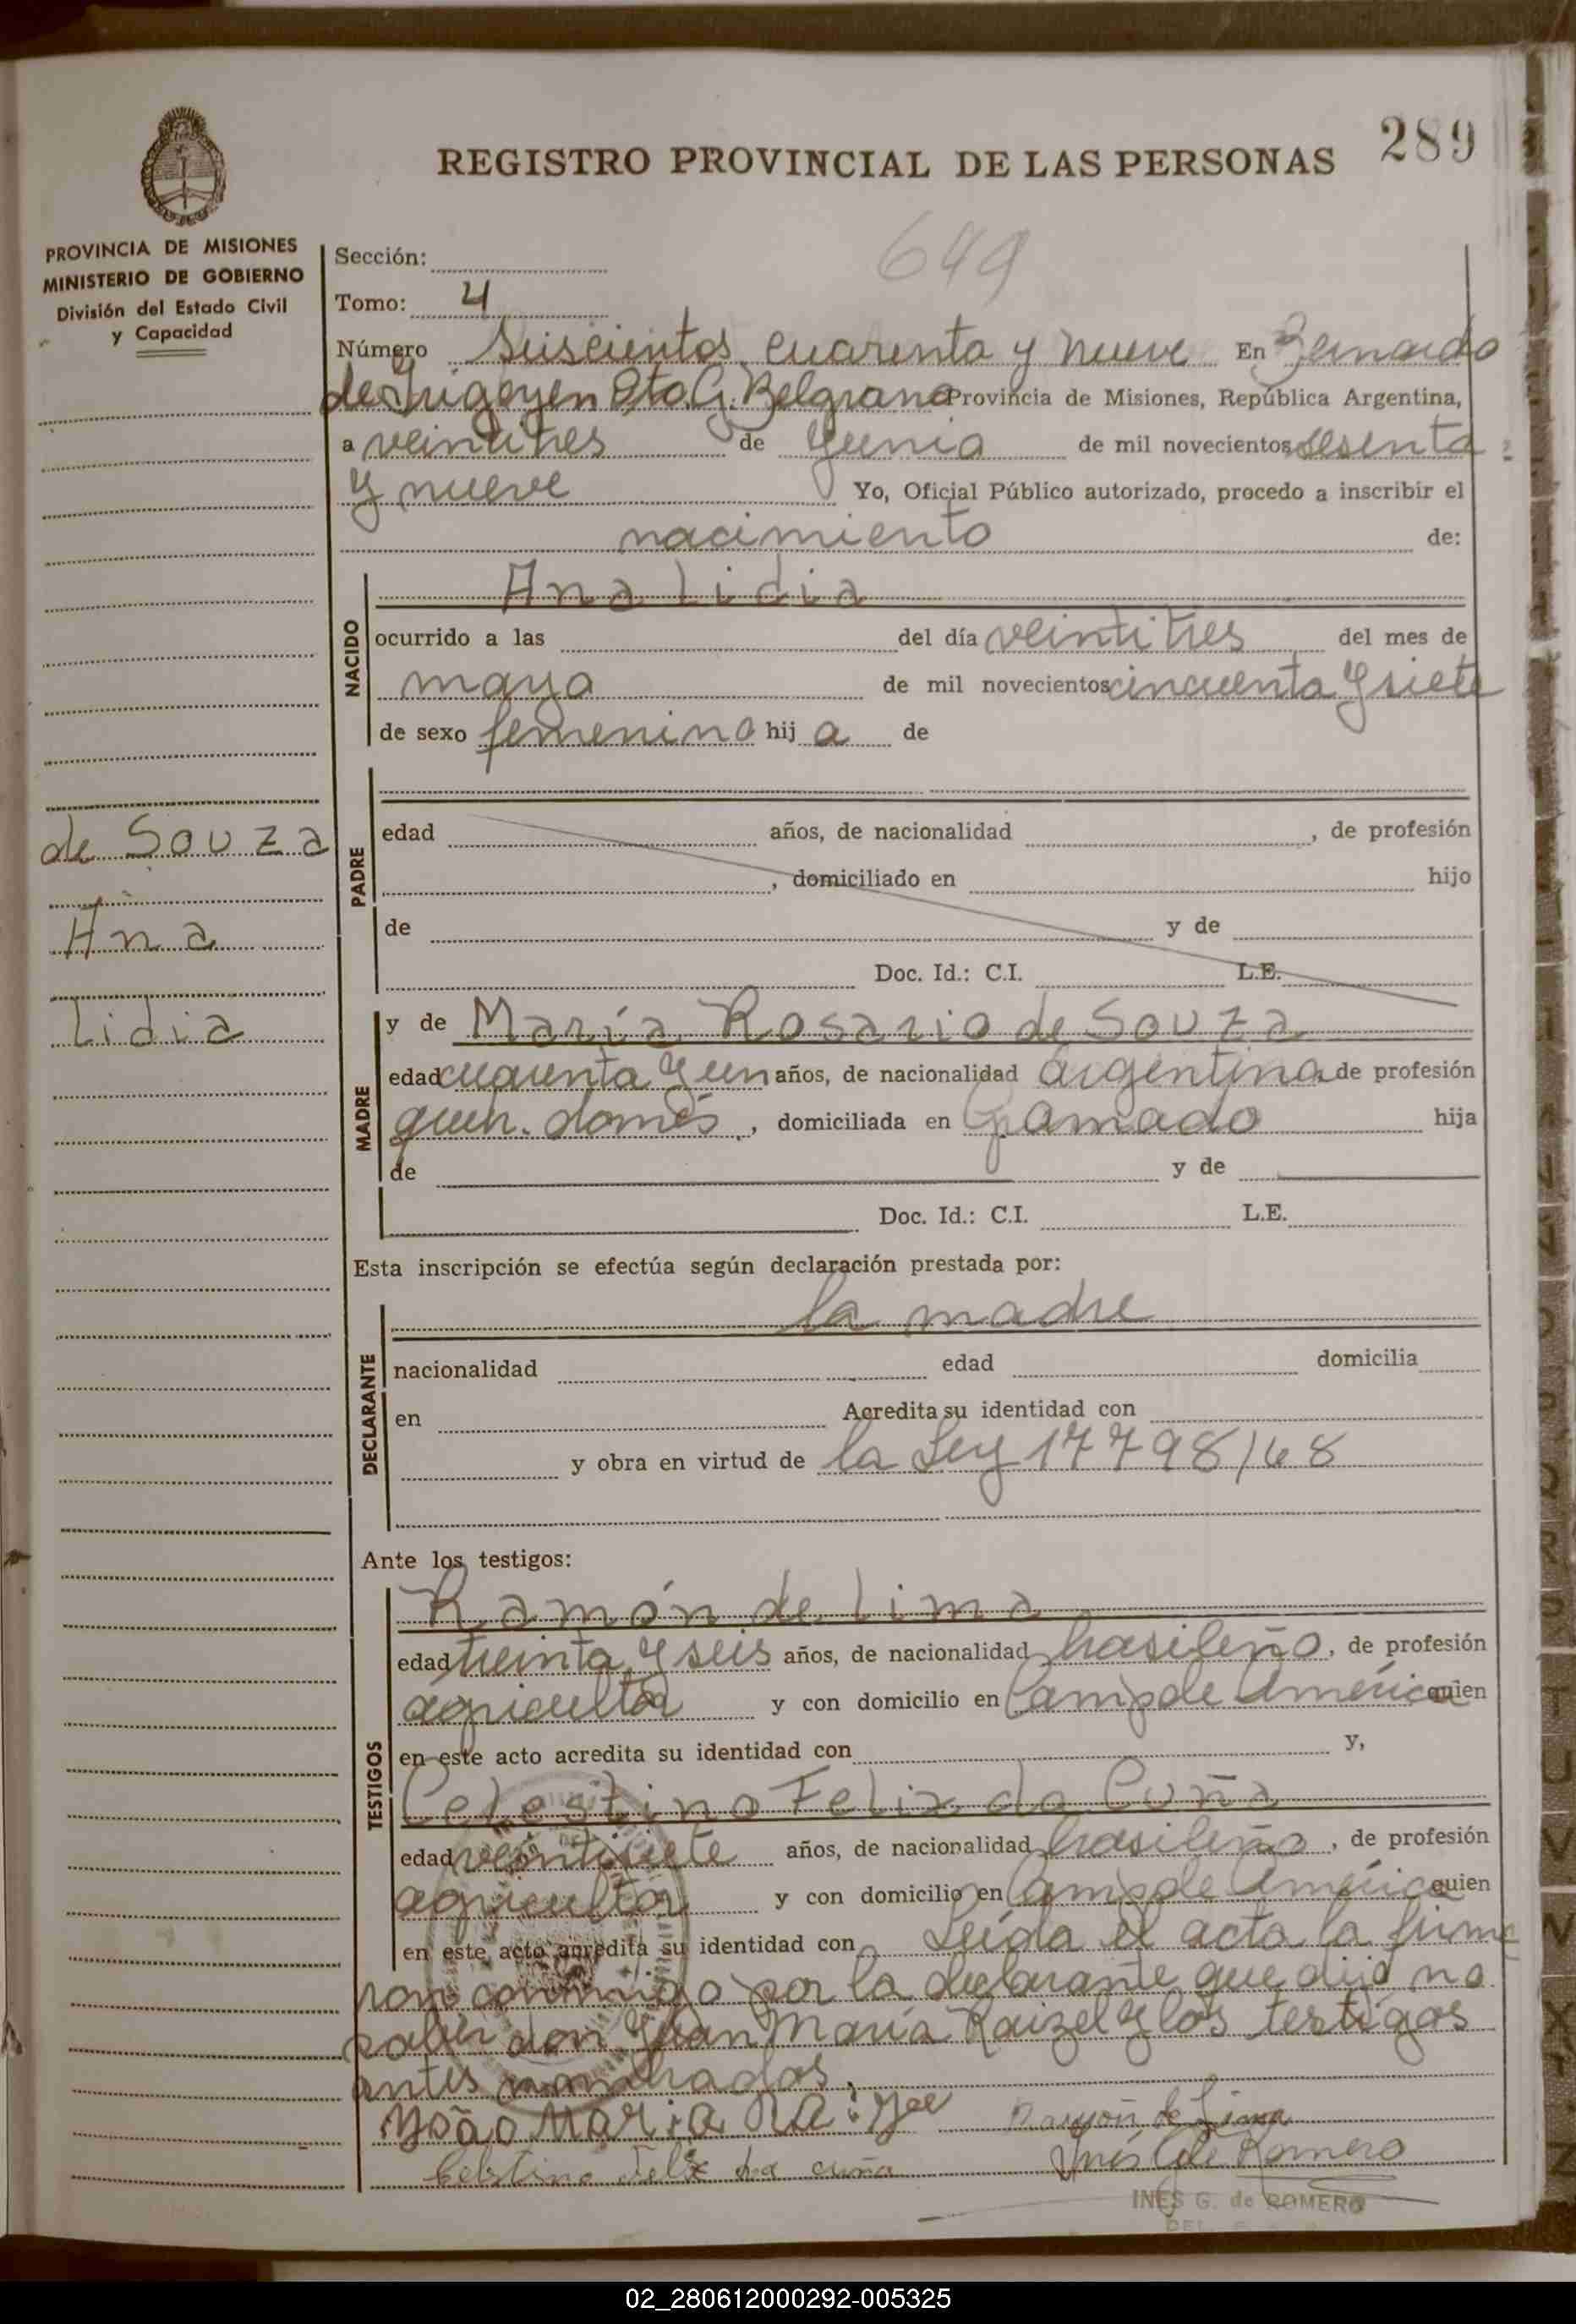 289
REGISTRO PROVINCIAL DE LAS PERSONAS
PROVINCIA DE MISIONES
MINISTERIO DE GOBIERNO
División del Estado Civil
y Capacidad
649
Sección:
Tomo: 4
Número Seiscientos cuarenta y nueve En Bernardo
de Irigoyen Dto. G. Belgrano Provincia de Misiones, República Argentina,
a veintitres de Junio de mil novecientos sesenta
y nueve Yo, Oficial Público autorizado, procedo a inscribir el
nacimiento de:
NACIDO
Ana Lidia
ocurrido a las del día veintitres del mes de
mayo de mil novecientos cincuenta y siete
de sexo femenino hij a de
PADRE
edad años, de nacionalidad , de profesión
, domiciliado en hijo
de y de
Doc. Id.: C.I. L.E.
de Souza
Ana
Lidia
MADRE
y de María Rosario de Souza
edad cuarenta y un años, de nacionalidad argentina de profesión
queh. domés , domiciliada en Gramado hija
de y de
Doc. Id.: C.I. L.E.
Esta inscripción se efectúa según declaración prestada por:
DECLARANTE
la madre
nacionalidad edad domicilia
en Acredita su identidad con
y obra en virtud de la Ley 17798/68
Ante los testigos:
TESTIGOS
Ramón de Lima
edad treinta y seis años, de nacionalidad brasileño, de profesión
agricultor y con domicilio en América quien
en este acto acredita su identidad con y,
Celestino Felix da Cuña
edad veintisiete años, de nacionalidad brasileño , de profesión
agricultor y con domicilio en América quien
en este acto acredita su identidad con Leída el acta la firma
ron conmigo por la declarante que dijo no
saber don Juan María Raizel y los testigos
antes nombrados.
João Maria Ramón de Lima
Celstino Felix da cuña Inés G de Romero
INES G. de ROMERO
02_280612000292-005325